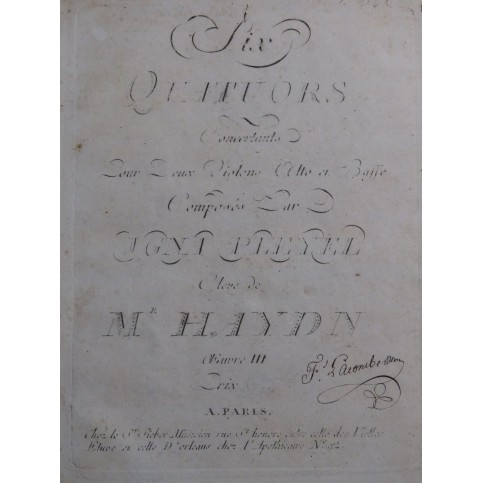 Six
QUATUORS
Concertants
Pour Deux Violons Alto et Basse
Composés Par
IGNA PLEYEL
Eleve de
M.R HAYDN
Œuvre III
Prix
A. PARIS.
Chez le Sr. Sieber Musicien rue St. honore entre celle des Vielles
Etuve et celle D'orleans chez l'Apothicaire No. 92.